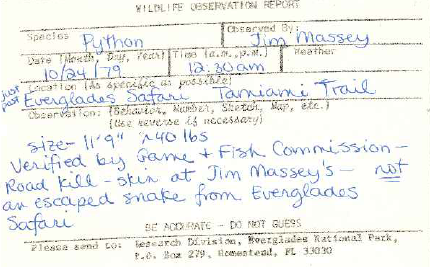 WILDLIFE OBSERVATION REPORT
Species Python Observed By: Jim Massey
Date (Month, Day, Year) 10/24/79 Time (a.m., p.m.) 12:30am Weather
Location (As specific as possible) just past Everglades Safari Tamiami Trail
Observation: (Behavior, Number, Sketch, Map, etc.)
(Use reverse if necessary)
size - 11'9" ~40 lbs
Verified by Game + Fish Commission -
Road kill - skin at Jim Massey's - not
an escaped snake from Everglades
Safari
BE ACCURATE - DO NOT GUESS
Please send to: Research Division, Everglades National Park,
P.O. Box 279, Homestead, FL 33030